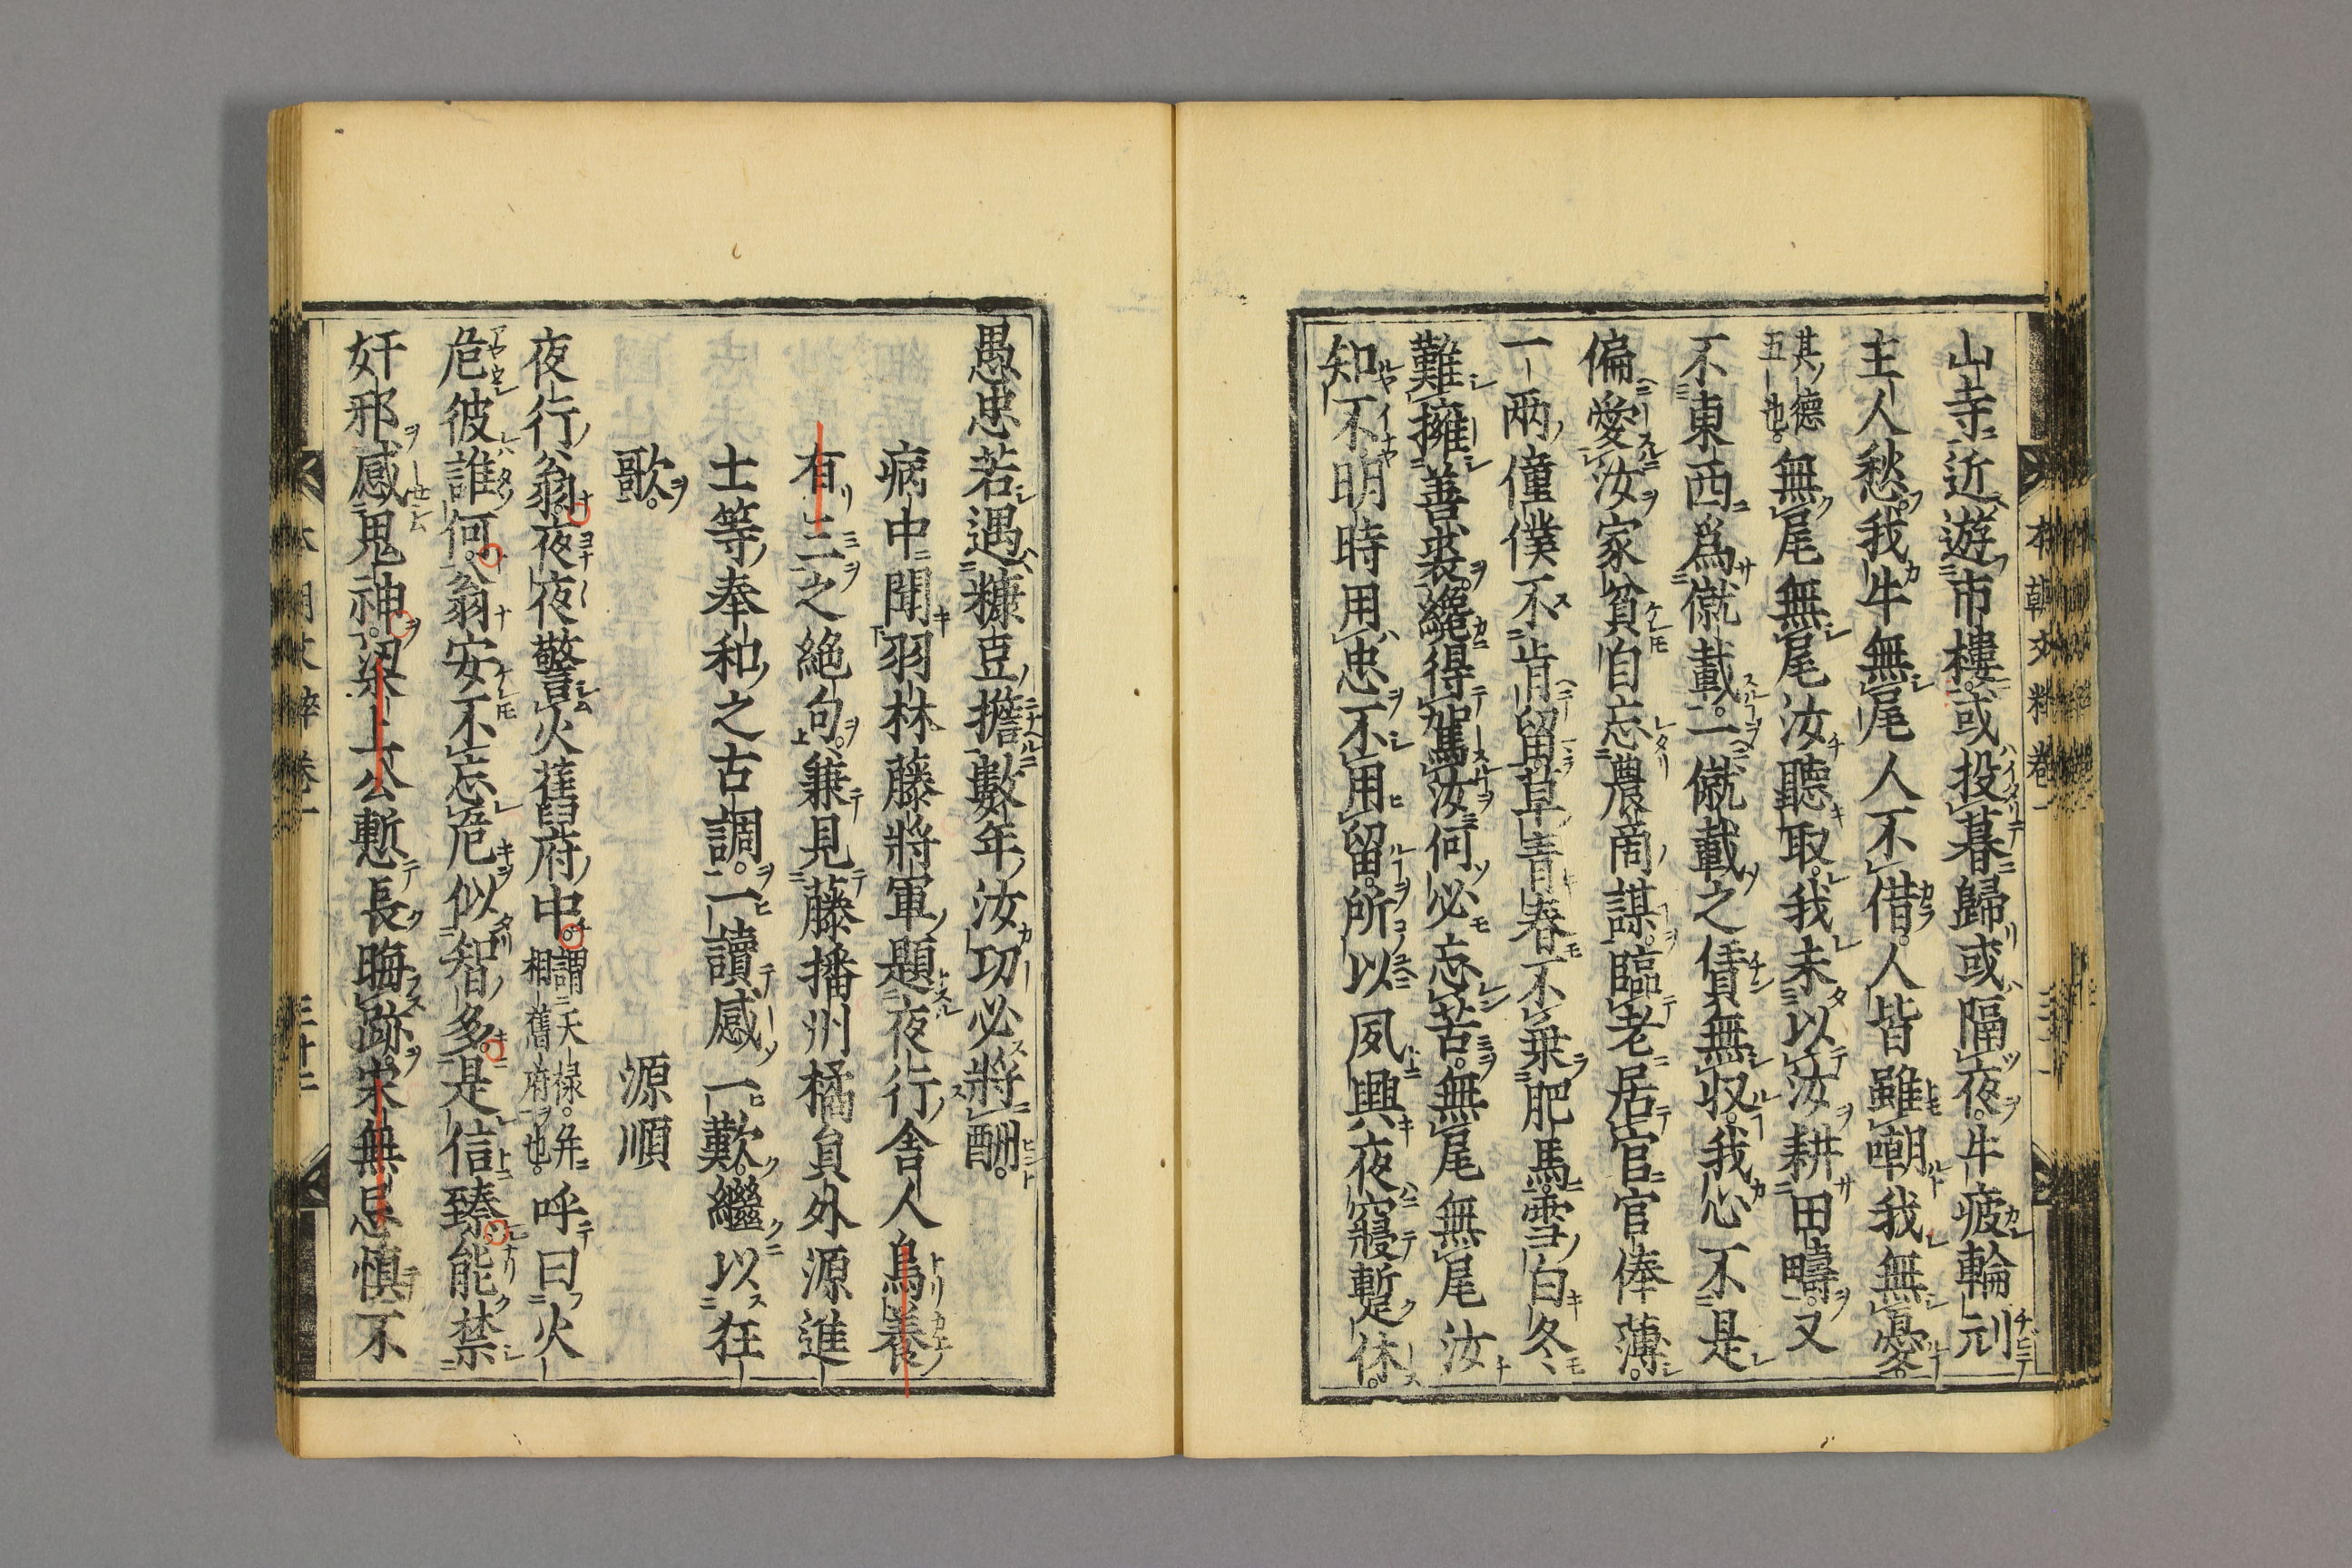 山寺近遊市樓或投暮歸或隔夜牛疲輪刓
主人愁我牛無尾人不借人皆雖嘲我無憂
其德
五也無尾無尾汝聽取我未以汝耕田疇又
不東西爲僦載一僦載之賃無收我心不是
偏愛汝家貧自忘農啇謀臨老居官官俸薄
一兩僮僕不肯留草青春不乗肥馬雪白冬
難擁善裘纔得駕汝何必忘苦無尾無尾汝
知不明時用忠不用留所以夙興夜寢暫休
本朝文粹卷一
愚忠若遇糠豆擔數年汝功必將酬
病中聞羽林藤將軍題夜行舍人鳥養
有三之絶句兼見藤播州橘員外源進
士等奉和之古調一讀感一歎繼以狂
歌
源順
夜行翁夜夜警火舊府中
謂天禄弁
相舊府也
呼曰火
危彼誰何翁安不忘危似智多是信臻能禁
奸邪感鬼神梁上公慙長晦跡宋無忌慎不
本朝文粹卷一
三十二